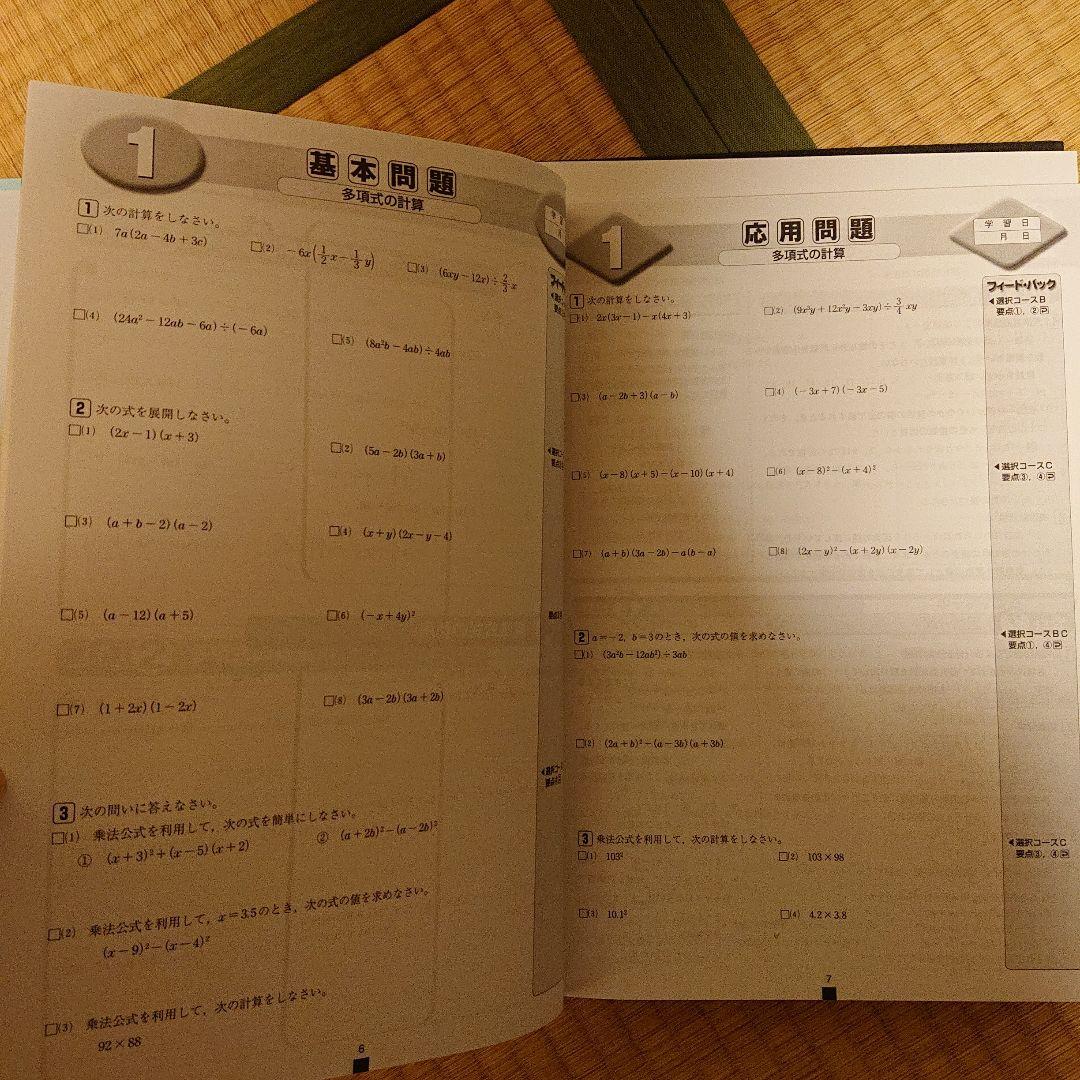 1
基本問題
多項式の計算
1 次の計算をしなさい。
□(1) 7a(2a−4b+3c)
□(2) −6x(1/2x−1/3y)
□(3) (6xy−12x)÷2/3x
□(4) (24a²−12ab−6a)÷(−6a)
□(5) (8a²b−4ab)÷4ab
2 次の式を展開しなさい。
□(1) (2x−1)(x+3)
□(2) (5a−2b)(3a+b)
□(3) (a+b−2)(a−2)
□(4) (x+y)(2x−y−4)
□(5) (a−12)(a+5)
□(6) (−x+4y)²
□(7) (1+2x)(1−2x)
□(8) (3a−2b)(3a+2b)
3 次の問いに答えなさい。
□(1) 乗法公式を利用して，次の式を簡単にしなさい。
① (x+3)²+(x−5)(x+2)
② (a+2b)²−(a−2b)²
□(2) 乗法公式を利用して，x=3.5のとき，次の式の値を求めなさい。
(x−9)²−(x−4)²
□(3) 乗法公式を利用して，次の計算をしなさい。
92×88
6
1
応用問題
多項式の計算
学習日
月 日
フィード・バック
1 次の計算をしなさい。
□(1) 2x(3x−1)−x(4x+3)
□(2) (9x²y+12x²y−3xy)÷3/4xy
◀選択コースB
要点①，②
□(3) (a−2b+3)(a−b)
□(4) (−3x+7)(−3x−5)
□(5) (x−8)(x+5)−(x−10)(x+4)
□(6) (x−8)²−(x+4)²
◀選択コースC
要点③，④
□(7) (a+b)(3a−2b)−a(b−a)
□(8) (2x−y)²−(x+2y)(x−2y)
2 a=−2，b=3のとき，次の式の値を求めなさい。
□(1) (3a²b−12ab²)÷3ab
◀選択コースBC
要点①，④
□(2) (2a+b)²−(a−3b)(a+3b)
3 乗法公式を利用して，次の計算をしなさい。
□(1) 103²
□(2) 103×98
◀選択コースC
要点③，④
□(3) 10.1²
□(4) 4.2×3.8
7